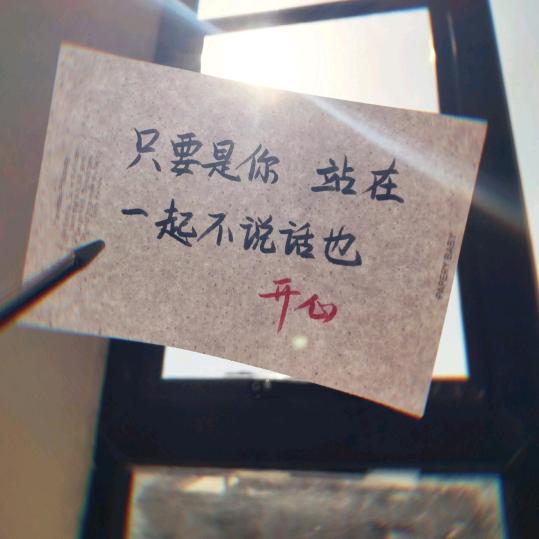 只要是你 站在
一起不说话也
开心